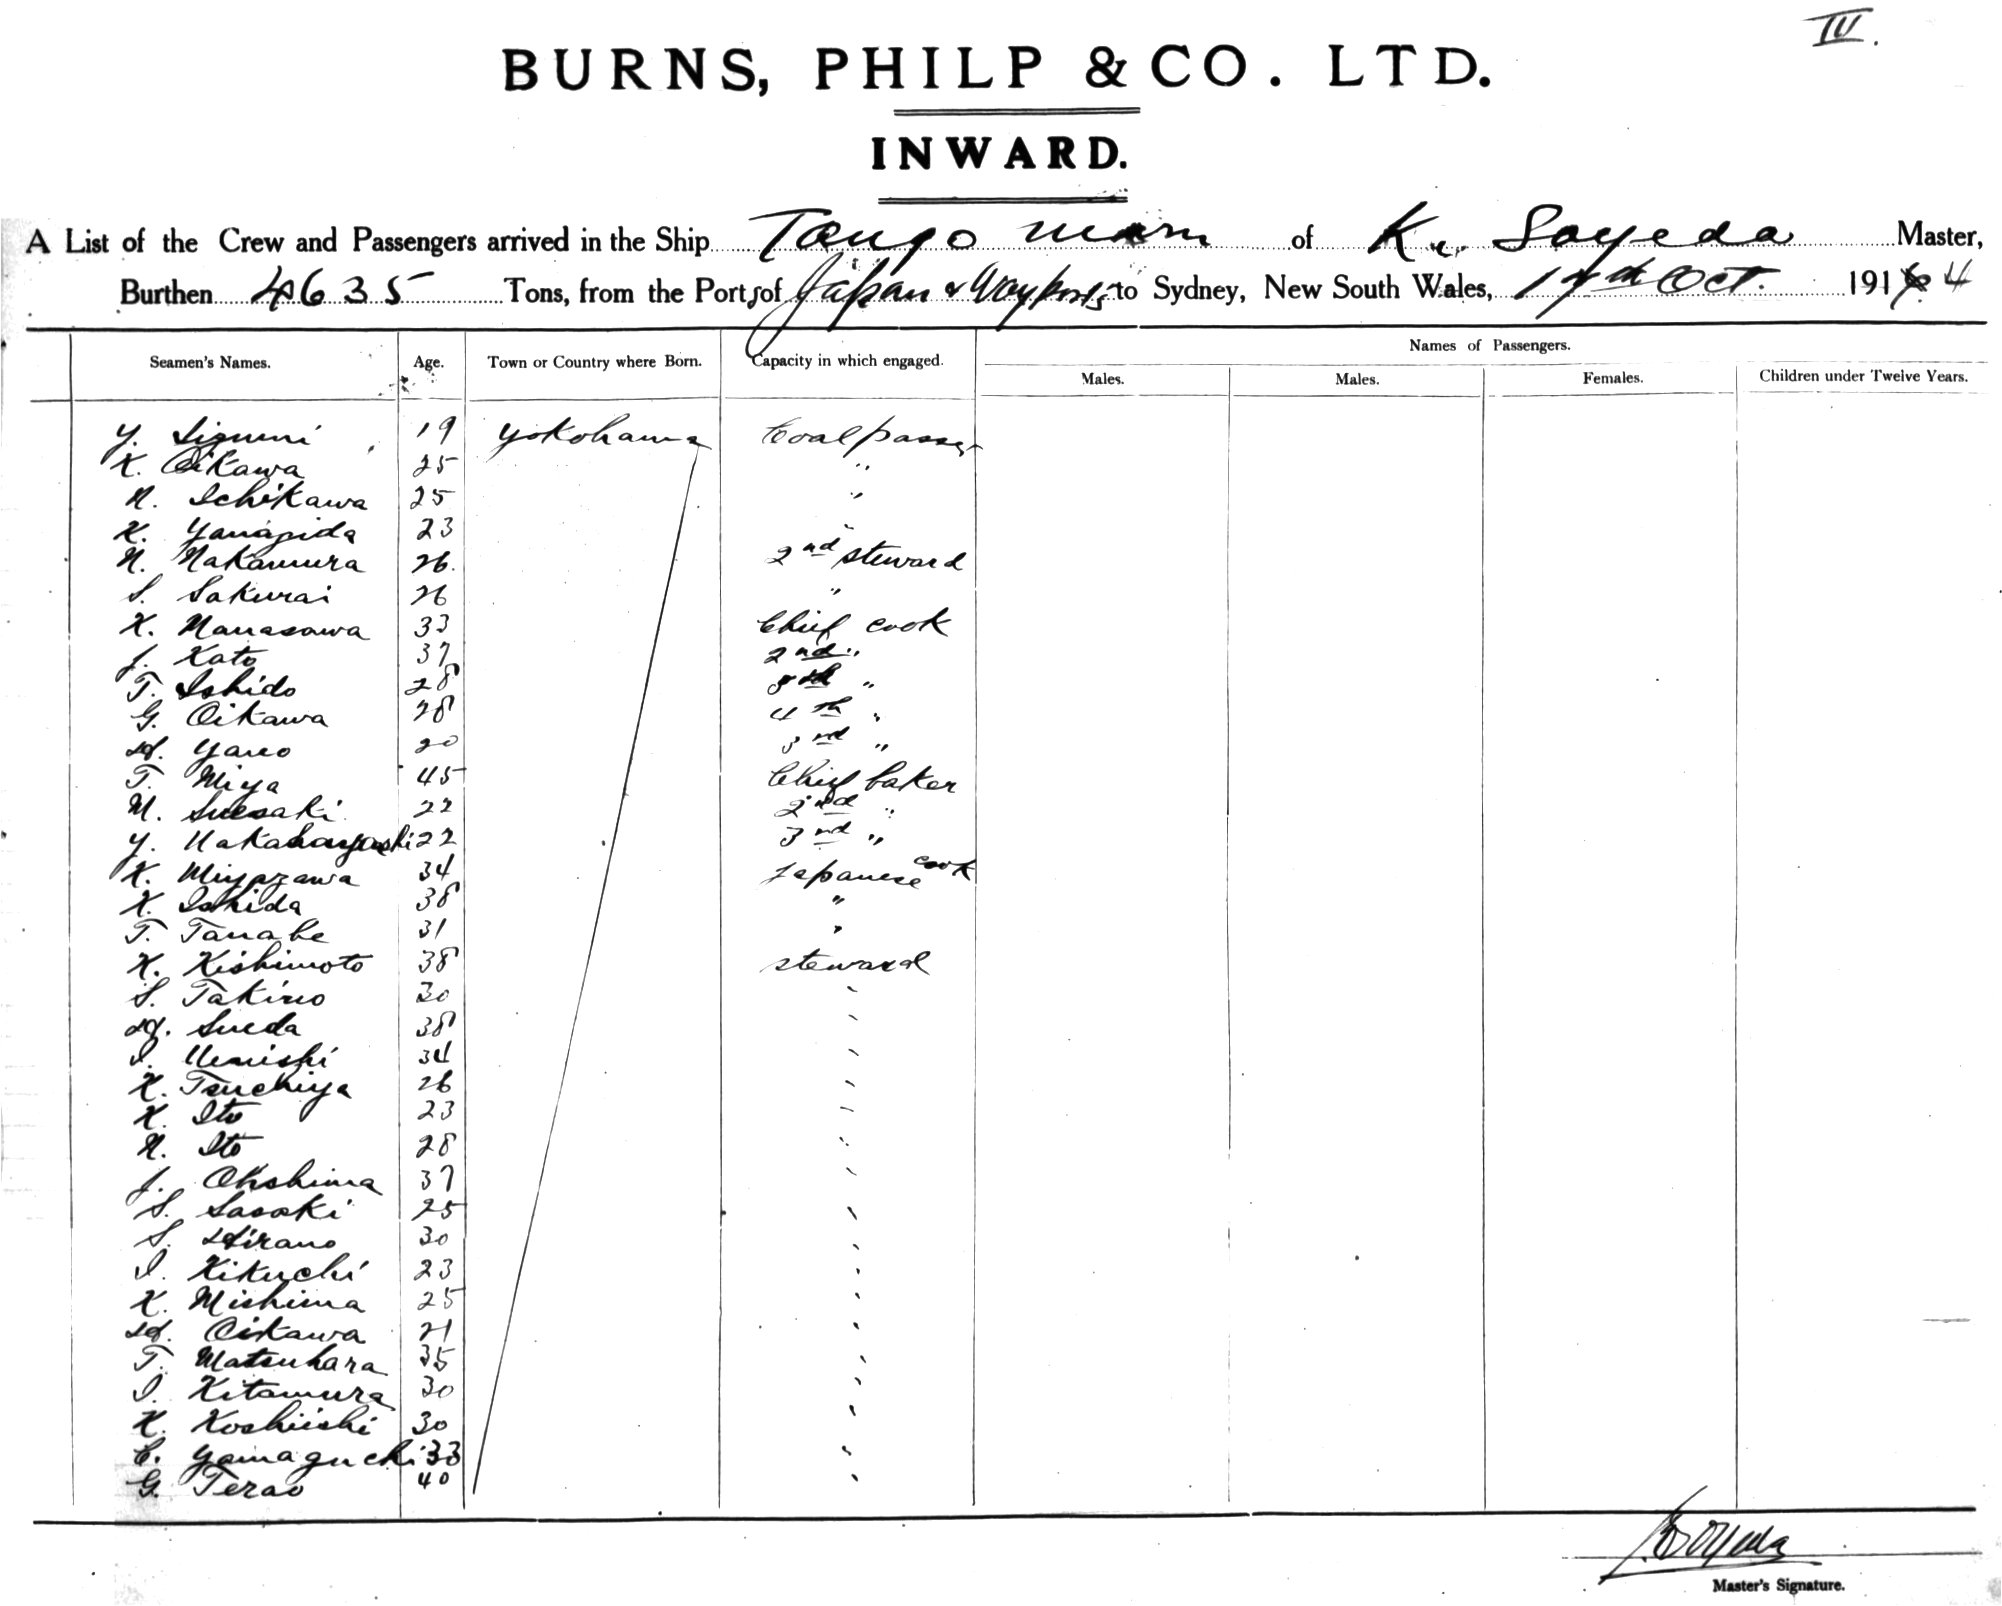 IV.
BURNS, PHILP & CO. LTD.
INWARD.
A List of the Crew and Passengers arrived in the Ship Tango Maru of K. Soyeda Master,
Burthen 4635 Tons, from the Ports of Japan & Way ports to Sydney, New South Wales, 17th Oct. 1914
Names of Passengers.
Seamen's Names. Age. Town or Country where Born. Capacity in which engaged. Males. Males. Females. Children under Twelve Years.
Y. 19 Yokohama Coal passer
K. Oikawa 25 "
N. Ichikawa 25 "
K. Yanagida 23 "
N. Nakamura 26 2nd steward
S. Sakurai 26 "
K. Manasawa 33 Chief cook
J. Kato 37 2nd "
T. Ishido 28 "
G. Oikawa 28 4th "
H. Yano 20 3rd "
T. Miya 45 Chief baker
M. Suesaki 22 2nd "
Y. Nakabayashi 22 3rd "
K. Miyazawa 34 Japanese cook
K. Ishida 38 "
T. Tanabe 31 "
K. Kishimoto 38 steward
S. Takino 30 "
H. Sueda 38 "
I. 34 "
K. Tsuchiya 26 "
K. Ito 23 "
N. Ito 28 "
J. Ohshima 37 "
S. Sasaki 25 "
S. Hirano 30 "
I. Kikuchi 23 "
K. Mishima 25 "
H. Oikawa 21 "
T. Matsuhara 35 "
I. Kitamura 30 "
K. Koshiishi 30 "
C. Yamaguchi 33 "
G. Terao 40 "
K. Soyeda
Master's Signature.